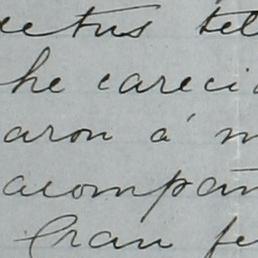 etus tel
he careci
aron á m
acompañ
Gran fe